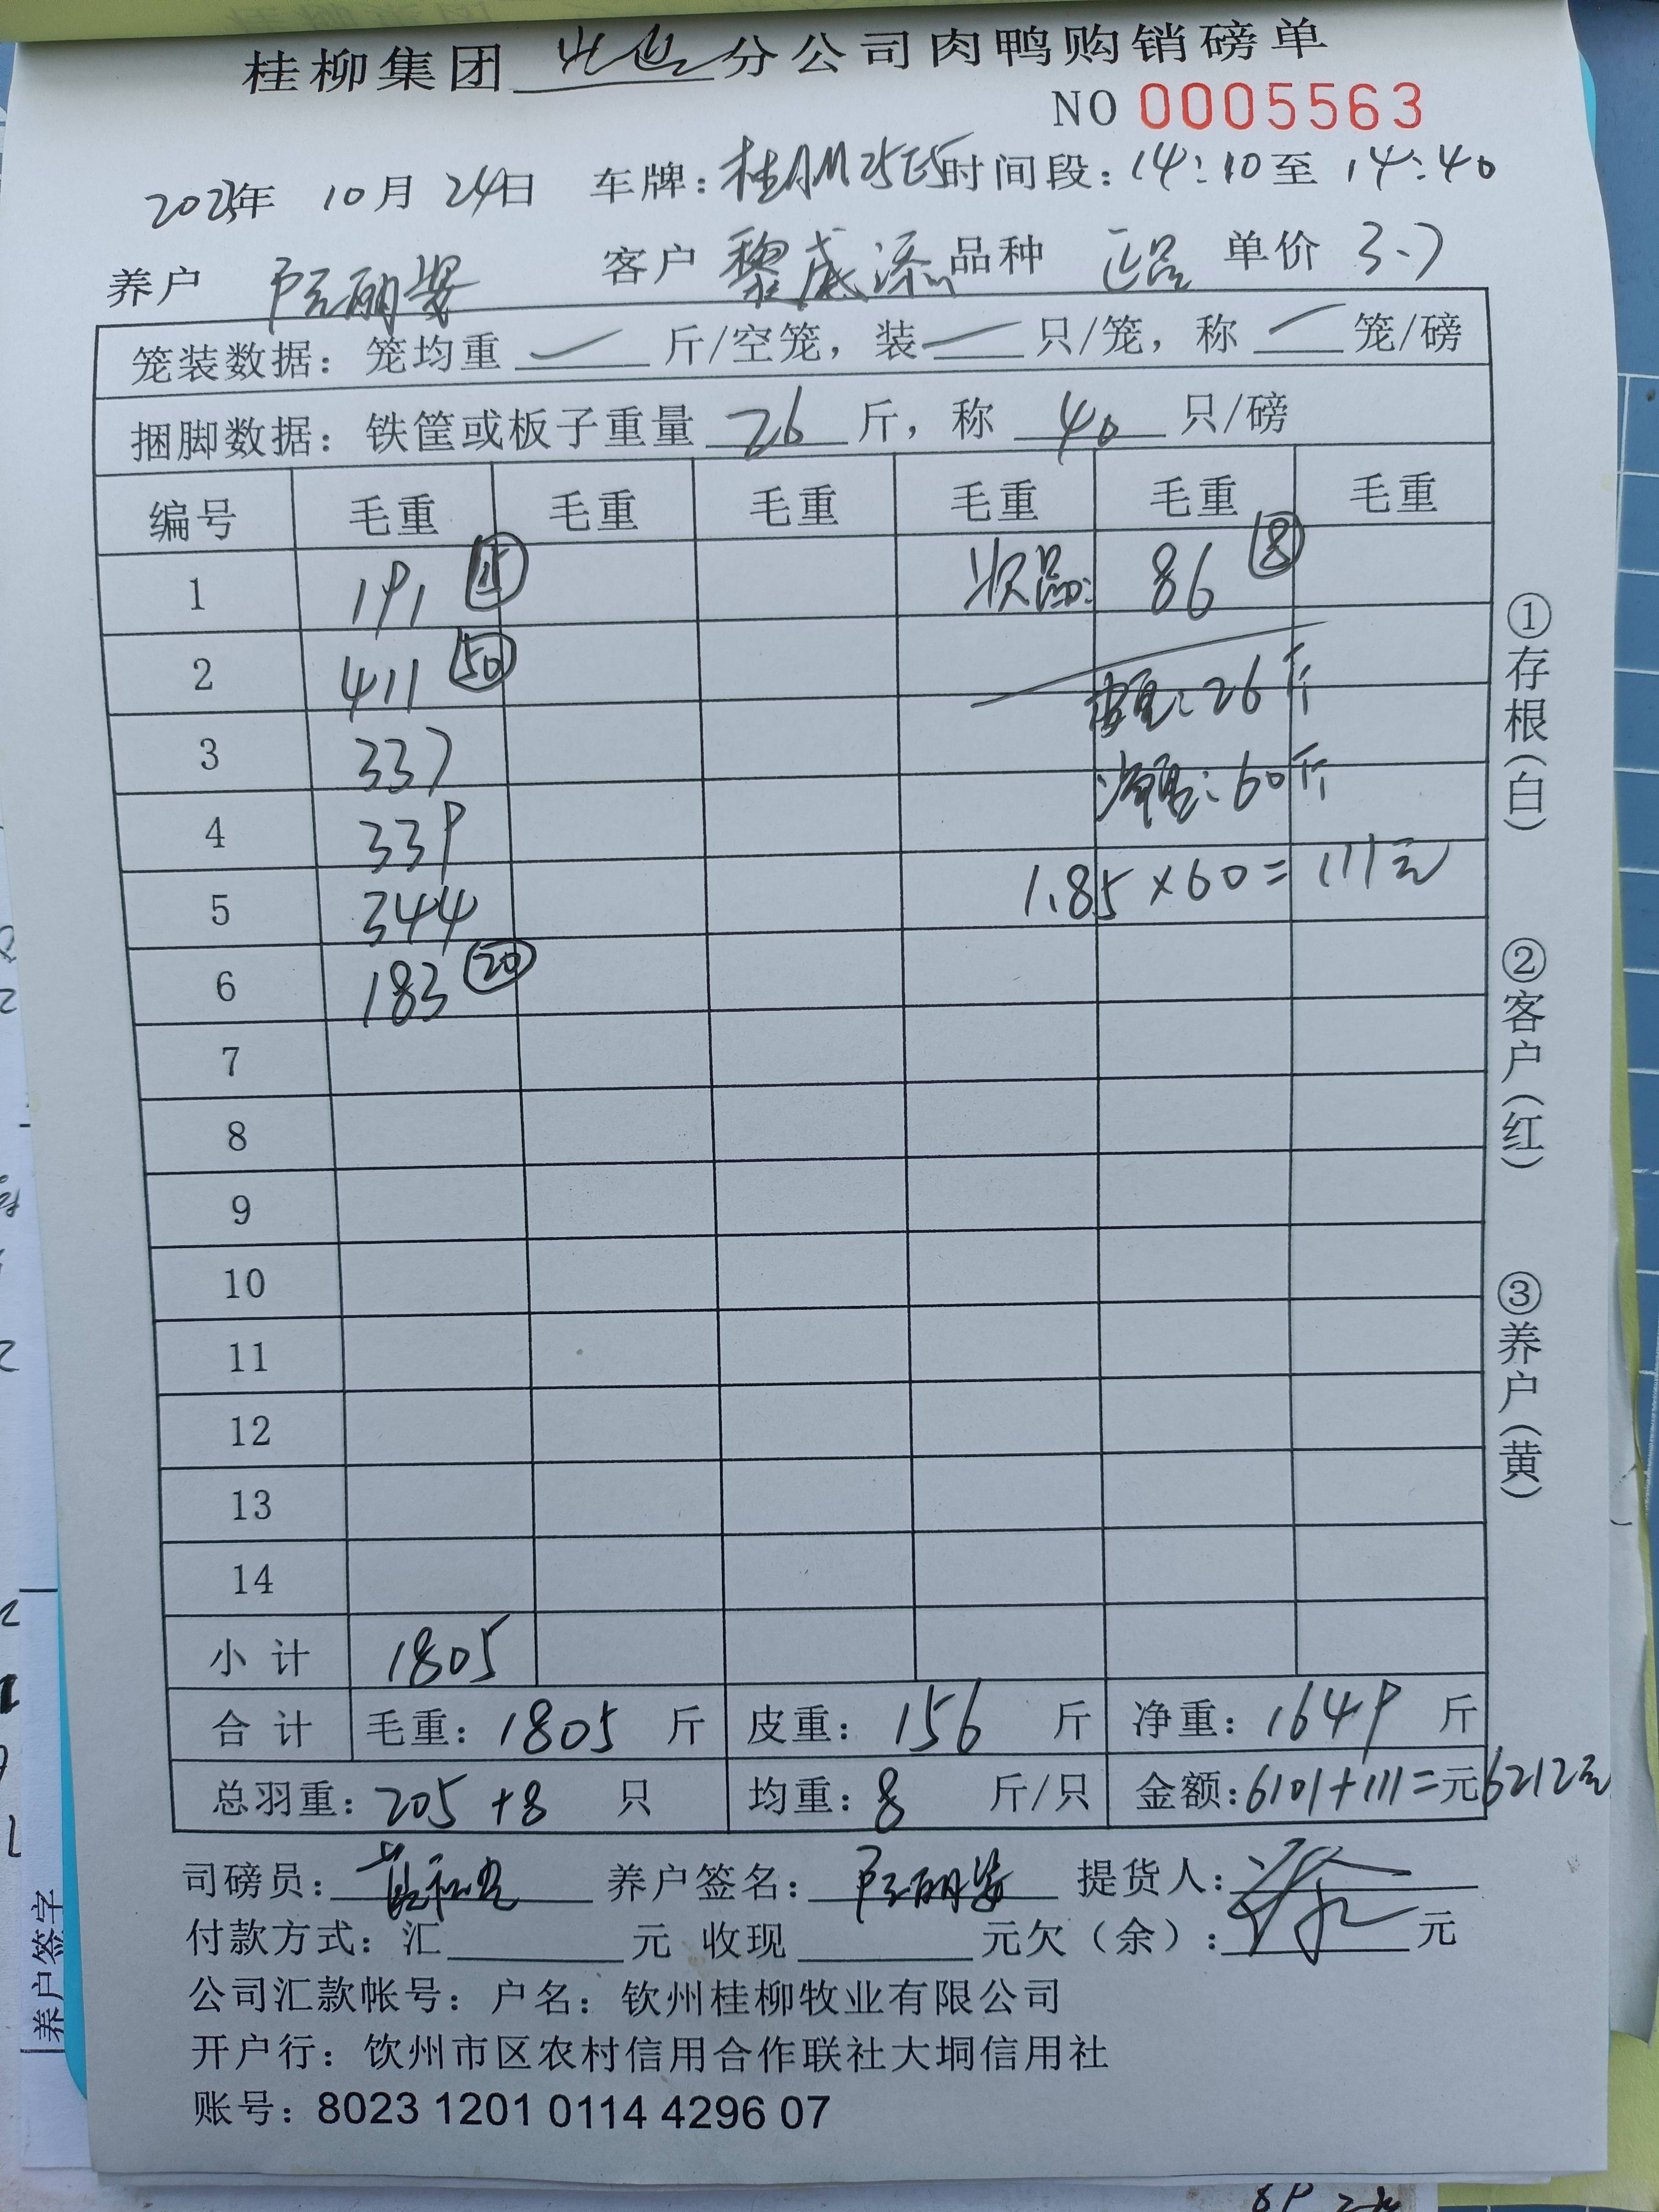 桂柳集团 分公司肉鸭购销磅单
NO 0005563
2023年 10月 24日 车牌: 时间段: 14:10 至 14:40
养户 客户 黎 添 品种 正品 单价 3.7
笼装数据: 笼均重 — 斤/空笼, 装 — 只/笼, 称 — 笼/磅
捆脚数据: 铁筐或板子重量 26 斤, 称 40 只/磅
编号 毛重 毛重 毛重 毛重 毛重 毛重
1 191 15 次品: 86 8
2 411 50 皮重: 26斤
3 337 净重: 60斤
4 339
5 344 1.85×60=111元
6 183 20
7
8
9
10
11
12
13
14
小计 1805
合计 毛重: 1805 斤 皮重: 156 斤 净重: 1649 斤
总羽重: 205+8 只 均重: 8 斤/只 金额: 6101+111=元 6212元
司磅员: 养户签名: 提货人:
付款方式: 汇 元 收现 元欠(余): 元
公司汇款帐号: 户名: 钦州桂柳牧业有限公司
开户行: 钦州市区农村信用合作联社大垌信用社
账号: 8023 1201 0114 4296 07
①存根(白)
②客户(红)
③养户(黄)
养户签字